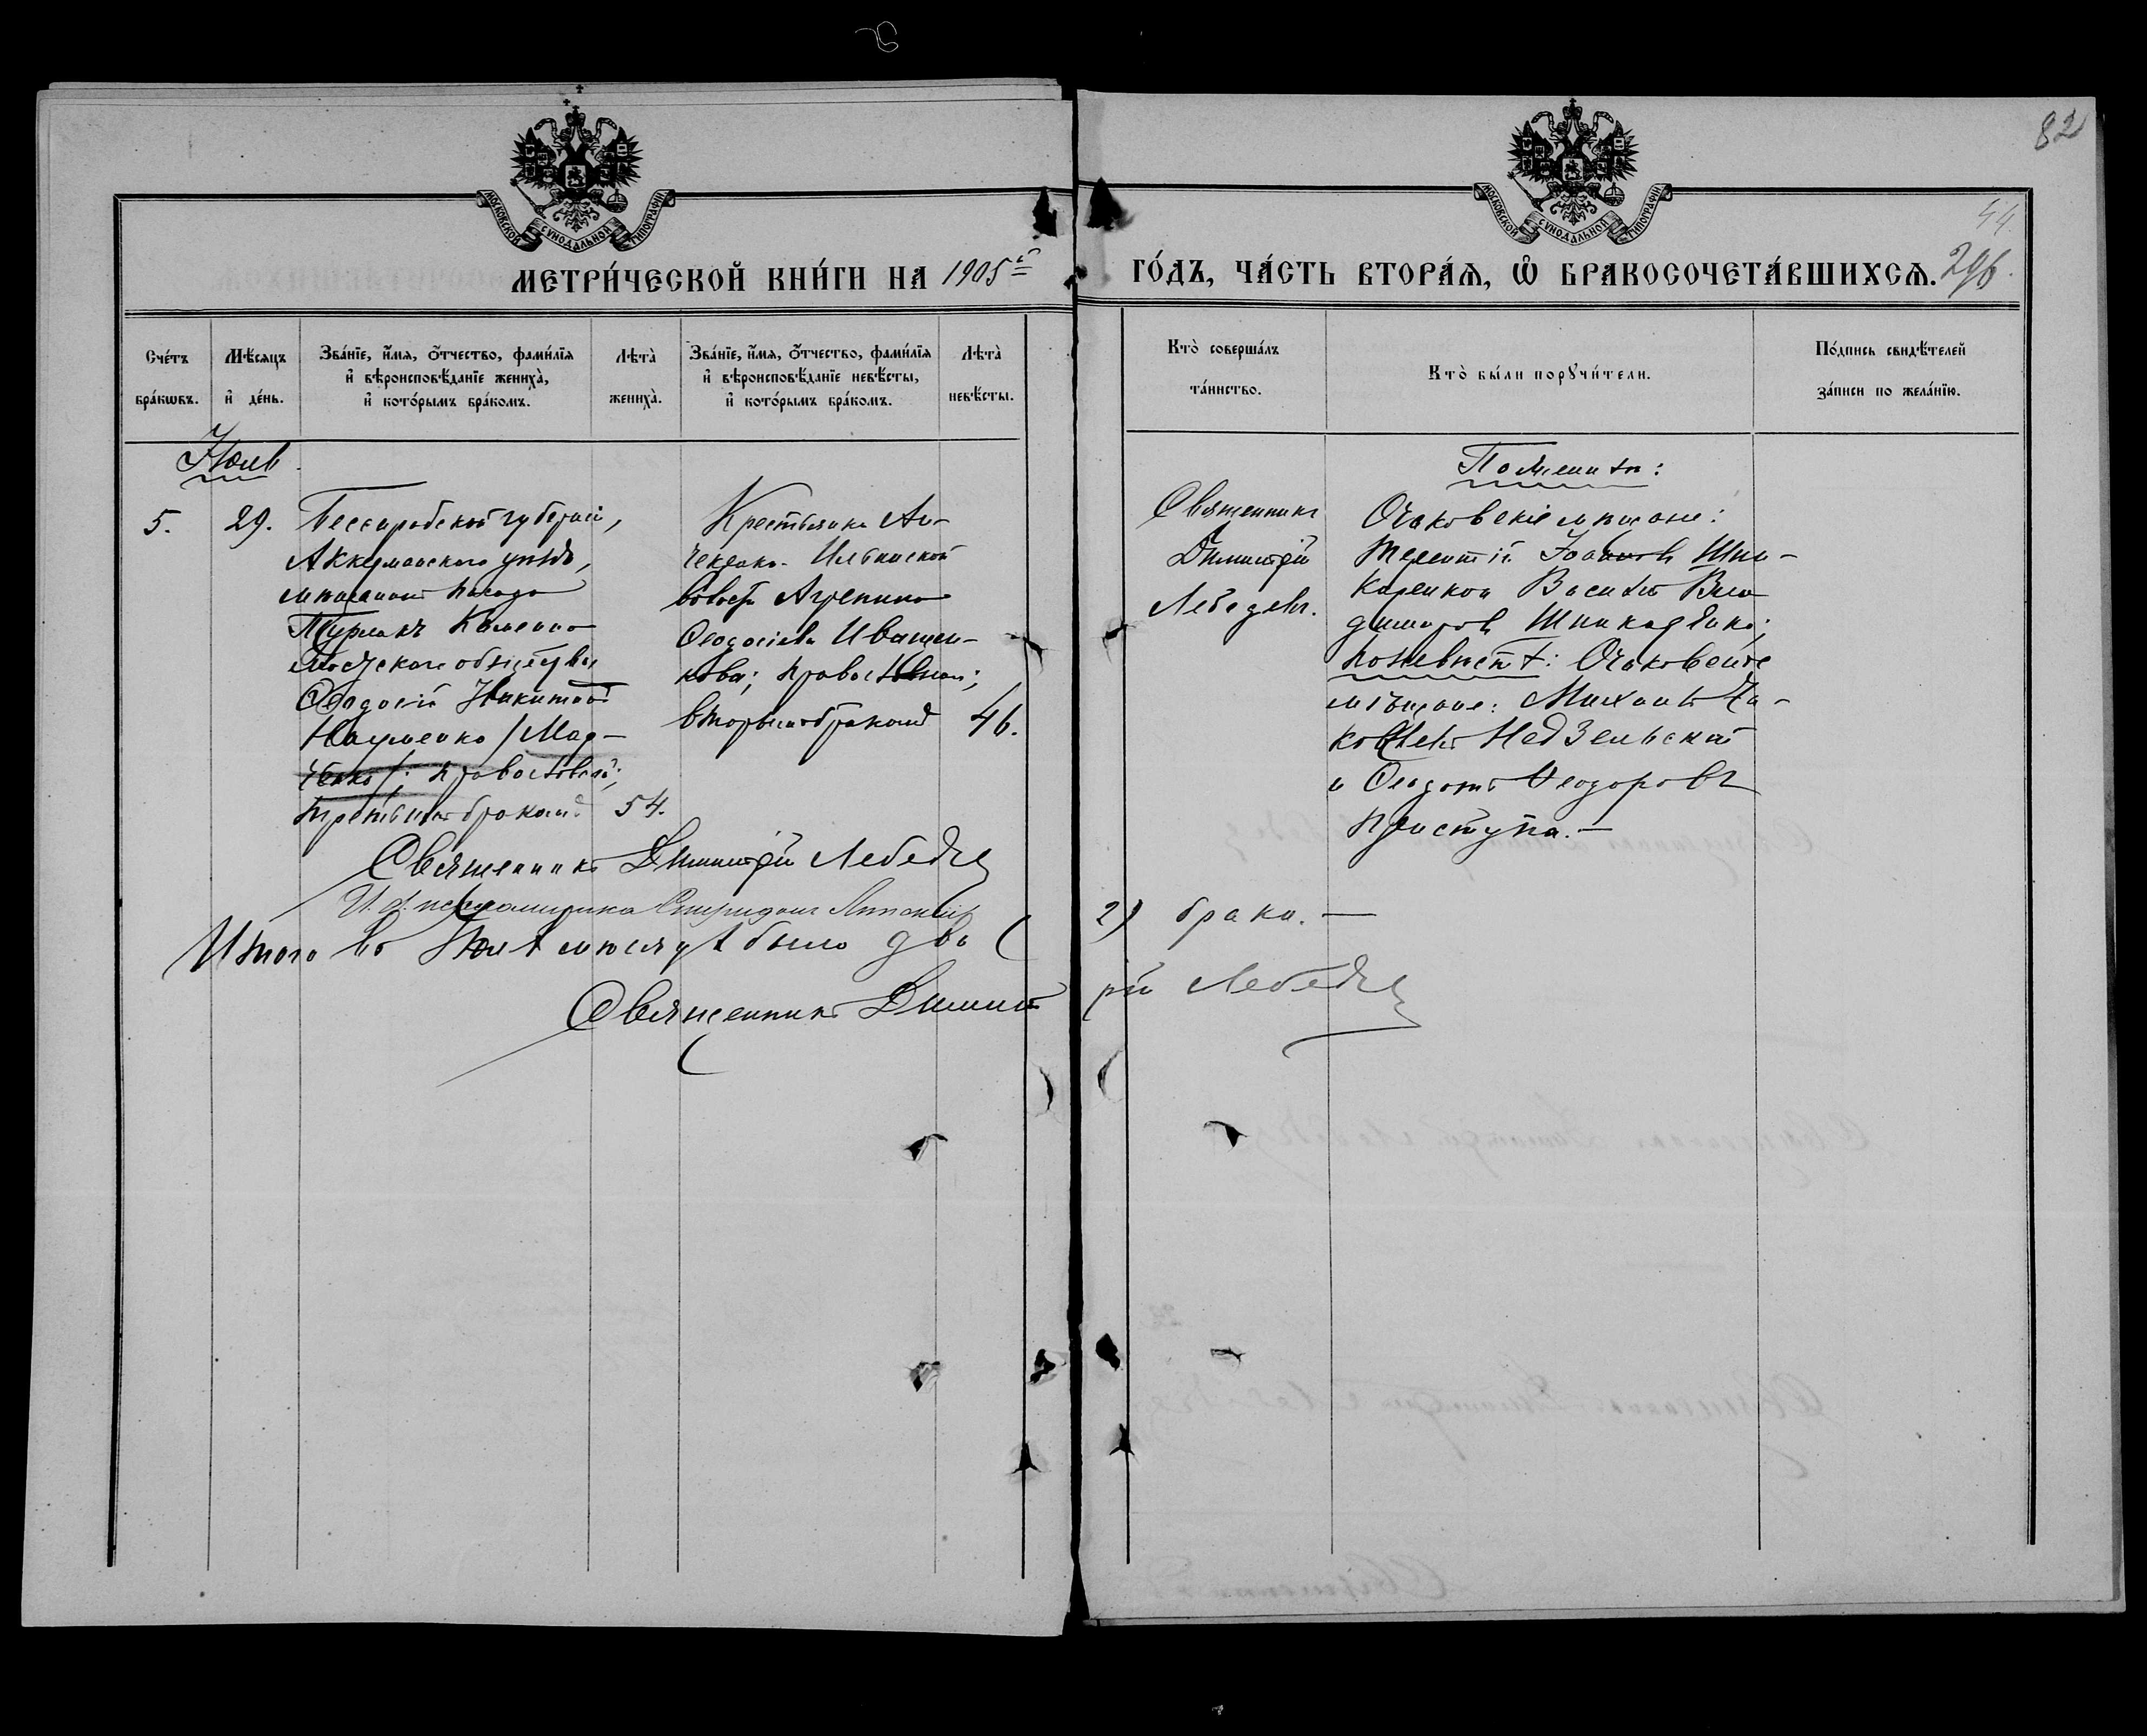 82
МОСКОВСКОЙ СѴНОДАЛЬНОЙ ТИПОГРАФІИ
МОСКОВСКОЙ СѴНОДАЛЬНОЙ ТИПОГРАФІИ
44.
МЕТРИ́ЧЕСКОЙ КНИ́ГИ НА 1905й
ГО́ДЪ, ЧА́СТЬ ВТОРА́Ѧ, Ѽ БРАКОСОЧЕТА́ВШИХСѦ. 296.
Сче́тъ
бра́кѡвъ.
Мѣ́сяцъ
и҆ де́нь.
Зва́нїе, и҆́мѧ, ѻ҆́тчество, фами́лїѧ
и҆ вѣроисповѣ́данїе женихà,
и҆ кото́рымъ бра́комъ.
Лѣтà
женихà.
Зва́нїе, и҆́мѧ, ѻ҆́тчество, фами́лїѧ
и҆ вѣроисповѣ́данїе невѣ́сты,
и҆ кото́рымъ бра́комъ.
Лѣтà
невѣ́сты.
Ктò соверша́лъ
та́инство.
Ктò бы́ли порꙋчи́тели.
По́дпись свидѣ́телей
за́писи по жела́нїю.
Іюль.
5.
29.
Бессарабской губерніи,
Аккерманскаго уѣзда,
мѣщанинъ посада
Турлакъ
общества
Ѳеодосій Никитовъ
Науменко /Мар-
ченко/; православный;
третьимъ бракомъ
54.
Крестьянка Ан-
чекрак. Ильинской
волости Агрепина
Ѳеодосіева Иващен-
кова; православная;
вторымъ бракомъ
46.
Священникъ
Димитрій
Лебедевъ.
По женихѣ:
Очаковскіе мѣщане:
Терентій Іоанновъ Шин-
каренко и Василій Вла
димировъ
по невѣстѣ: Очаковскіе
мѣщане: Михаилъ Яа-
ковлевъ Недзельскій
и Ѳеодотъ Ѳеодоровъ
Приступа.—
Священникъ Димитрій Лебедевъ
И. д. псаломщика Спиридонъ
Итого въ Іюлѣ мѣсяцѣ было два (2) брака.—
Священникъ Димитрій Лебедевъ